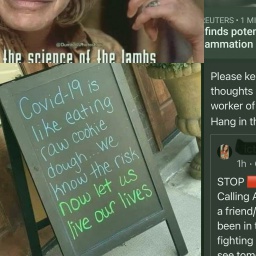 the science of the lambs
Covid-19 is
like eating
raw cookie
dough... we
know the risk
now let us
live our lives
EUTERS • 1 MI
finds poter
ammation
Please ke
thoughts
worker of
Hang in th
1h •
STOP
Calling A
a friend/
been in t
fighting
see tom